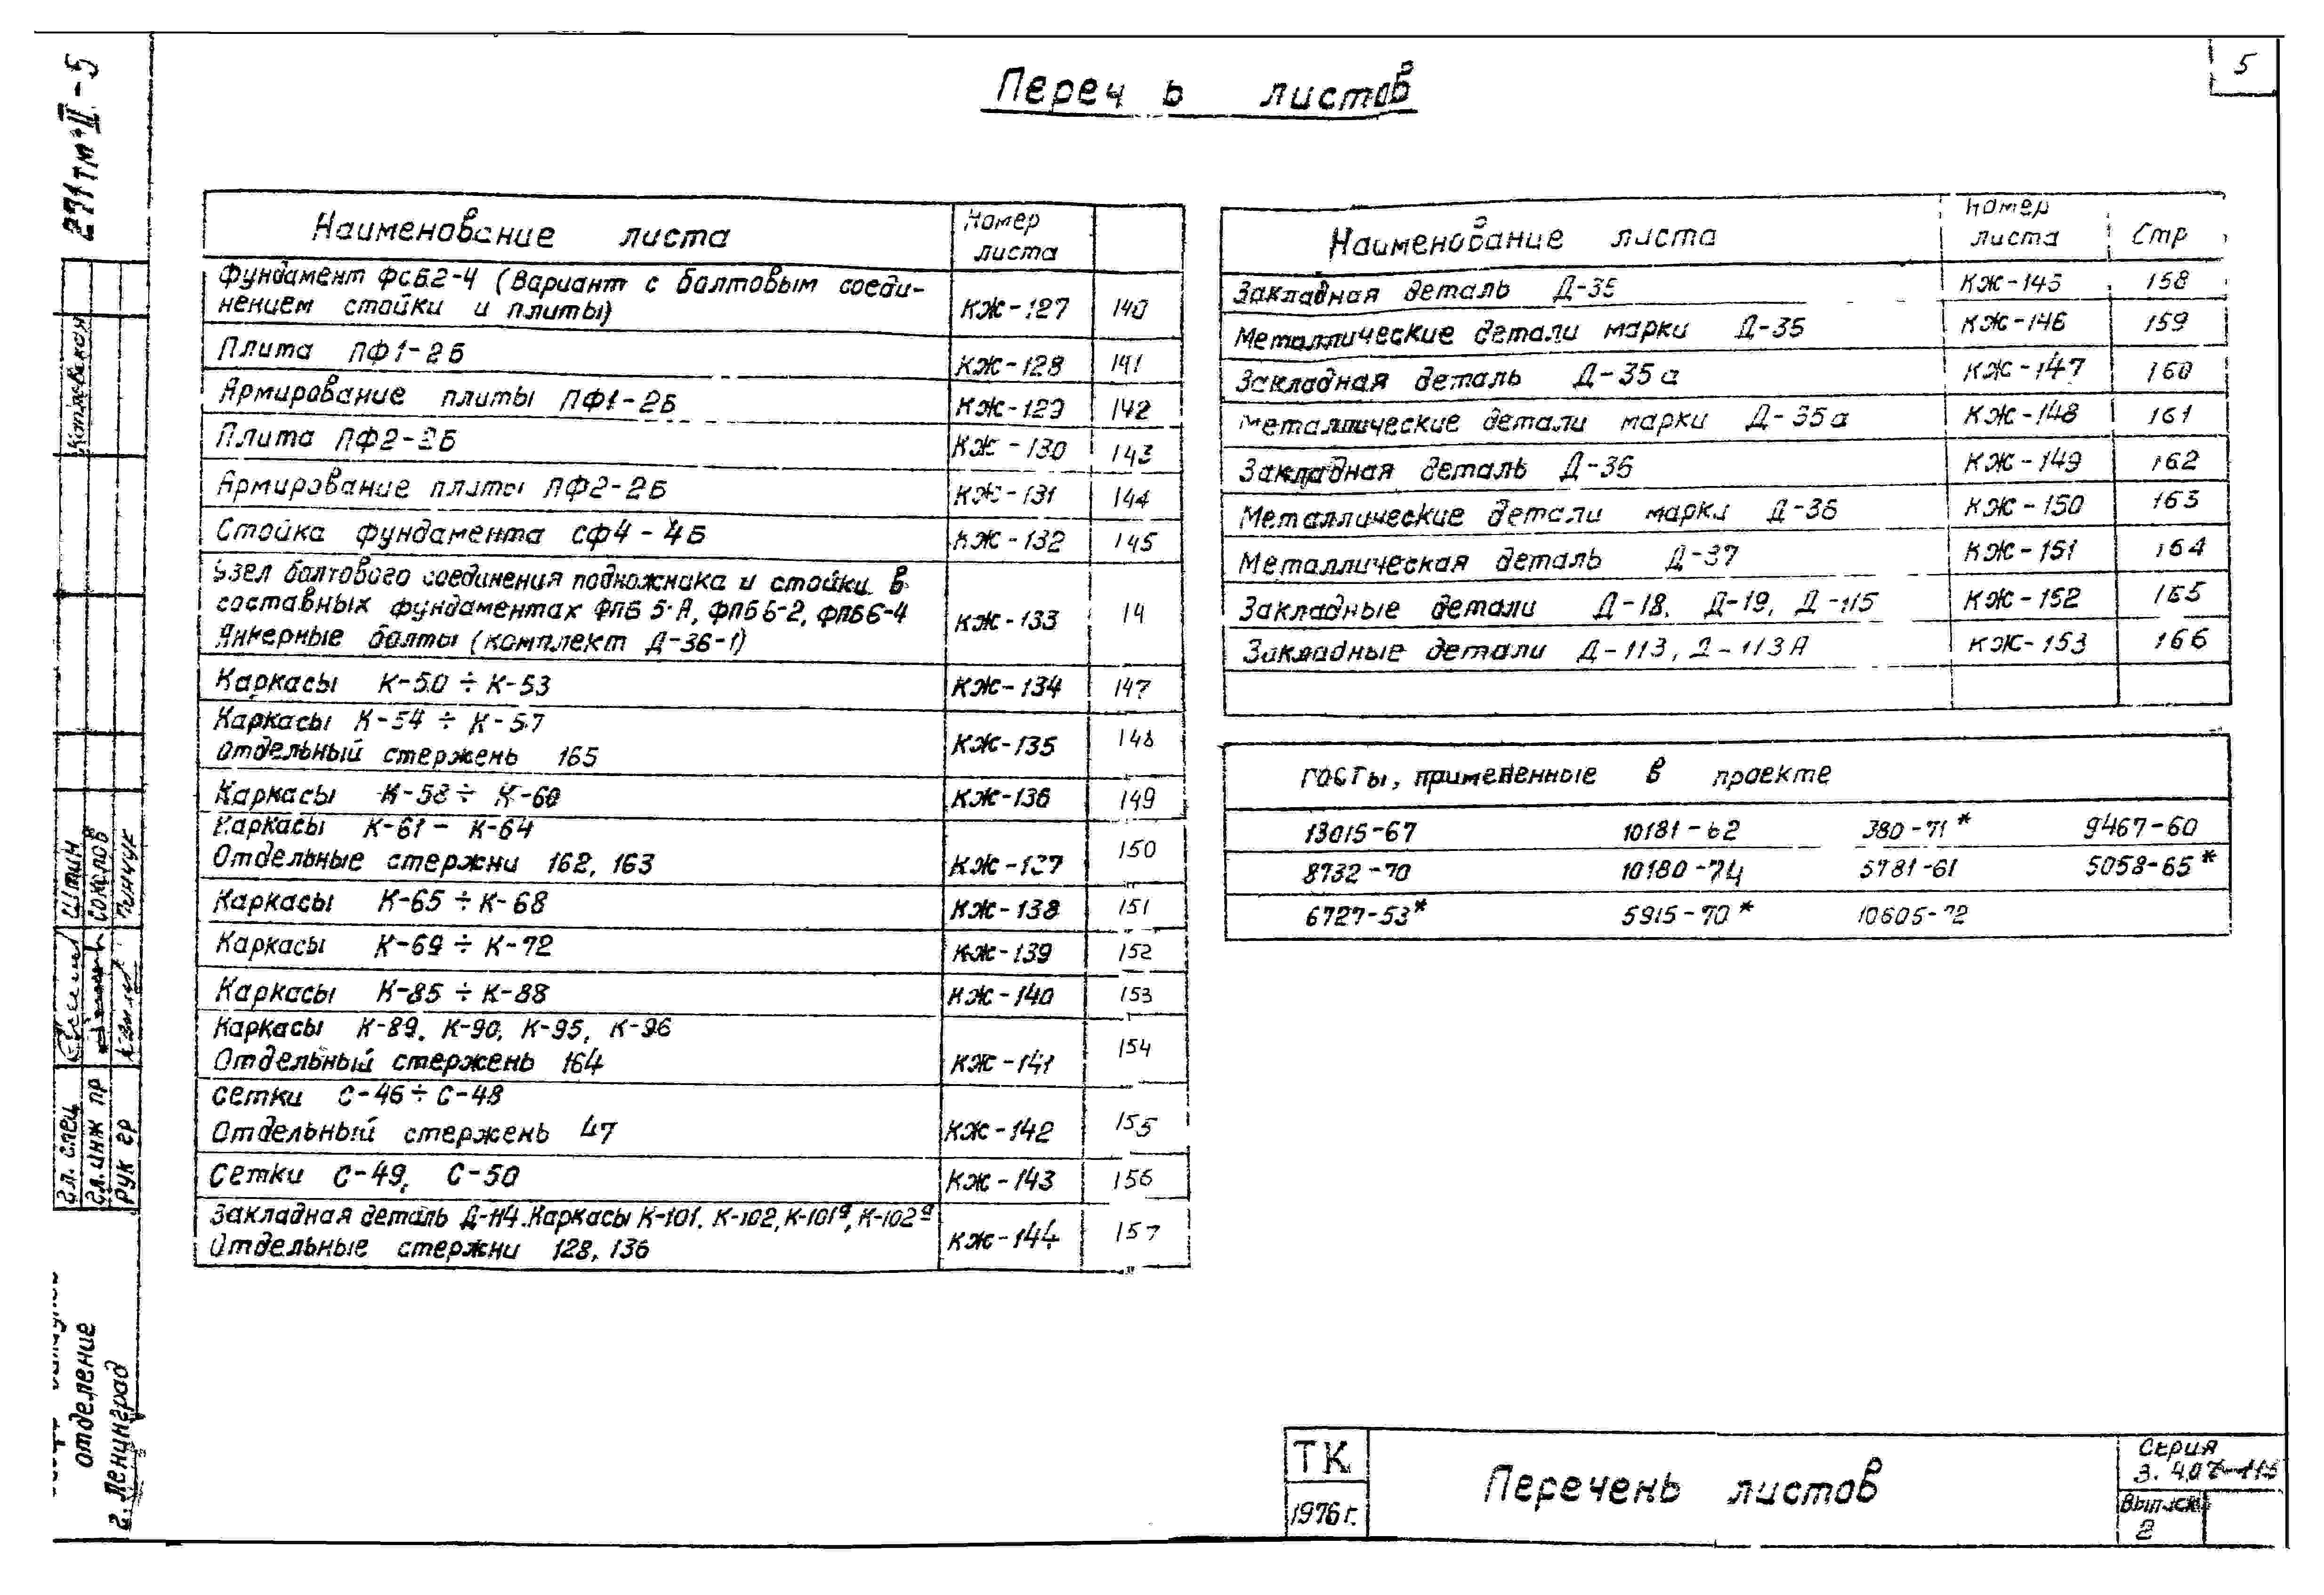 5
Переч ь листов
Наименование листа Номер листа
Фундамент ФсБ2-4 (Вариант с болтовым соеди-
нением стойки и плиты) КЖ-127 140
Плита ПФ1-2Б КЖ-128 141
Армирование плиты ПФ1-2Б КЖ-129 142
Плита ПФ2-2Б КЖ-130 143
Армирование плиты ПФ2-2Б КЖ-131 144
Стойка фундамента СФ4-4Б КЖ-132 145
Узел болтового соединения подножника и стойки в
составных фундаментах ФПБ5-А, ФПБ6-2, ФПБ6-4 КЖ-133 14
Анкерные болты (комплект Д-36-1)
Каркасы К-50 ÷ К-53 КЖ-134 147
Каркасы К-54 ÷ К-57
Отдельный стержень 165 КЖ-135 148
Каркасы К-58 ÷ К-60 КЖ-136 149
Каркасы К-61 – К-64
Отдельные стержни 162, 163 КЖ-137 150
Каркасы К-65 ÷ К-68 КЖ-138 151
Каркасы К-69 ÷ К-72 КЖ-139 152
Каркасы К-85 ÷ К-88 КЖ-140 153
Каркасы К-89, К-90, К-95, К-96
Отдельный стержень 164 КЖ-141 154
Сетки С-46 ÷ С-48
Отдельный стержень 47 КЖ-142 155
Сетки С-49, С-50 КЖ-143 156
Закладная деталь Д-114. Каркасы К-101, К-102, К-101а, К-102а
Отдельные стержни 128, 136 КЖ-144 157
Наименование листа Номер листа Стр
Закладная деталь Д-35 КЖ-145 158
Металлические детали марки Д-35 КЖ-146 159
Закладная деталь Д-35а КЖ-147 160
Металлические детали марки Д-35а КЖ-148 161
Закладная деталь Д-36 КЖ-149 162
Металлические детали марки Д-36 КЖ-150 163
Металлическая деталь Д-37 КЖ-151 164
Закладные детали Д-18, Д-19, Д-115 КЖ-152 165
Закладные детали Д-113, Д-113А КЖ-153 166
ГОСТы, примененные в проекте
13015-67 10181-62 380-71* 9467-60
8732-70 10180-74 5781-61 5058-65*
6727-53* 5915-70* 10605-72
ТК
1976г.
Перечень листов
Серия
3.407-115
Выпуск
2
271тм-II-5
Гл. спец Штин
Гл. инж пр Соколов
Рук гр
отделение
г. Ленинград